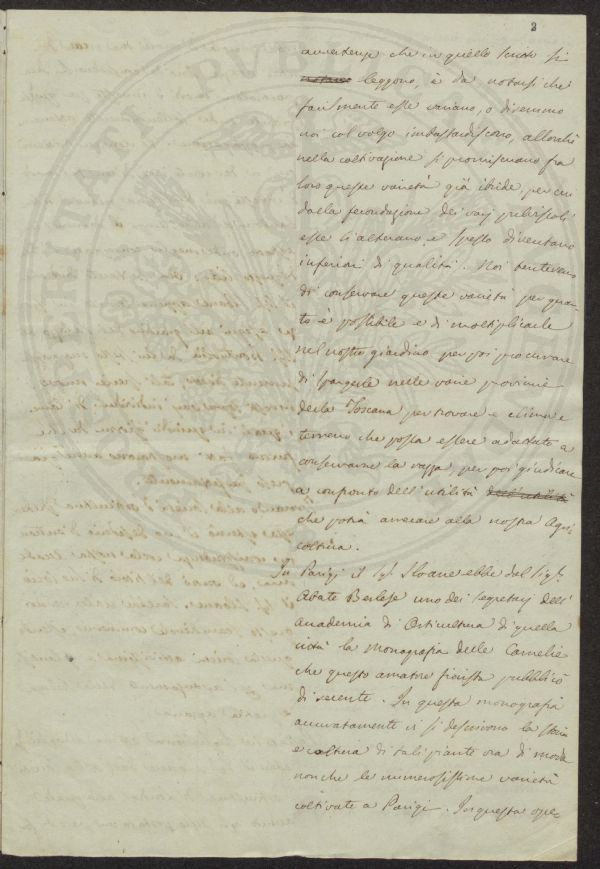 3
avvertenze che in quello scritto si
notano leggono, è da notarsi che
facilmente esse variano, o diremmo
noi col volgo imbastardiscono, allorchè
nella coltivazione si promiscuano fra
loro queste varietà già ibride, per cui
dalla fecondazione dei varj
esse si alterano, e spesso diventano
inferiori di qualità. Noi tenteremo
di conservare queste varietà per quan=
to è possibile e di moltiplicarle
nel nostro giardino per poi procurare
di spargerle nelle varie provincie
della Toscana per trovare e clima e
terreno che possa essere adattato a
conservarne la razza, per poi giudicare
a confronto dell'utilità dell'utilità
che potrà arrecare alla nostra Agri
coltura.
In Parigi il Sig. Sloane ebbe dal Sig.
Abate Berlese uno dei Segretarj dell'
Accademia di Orticultura di quella
città la monografia delle Camelie
che questo amatore fiorista pubblicò
di recente. In questa monografia
accuratamente vi si descrivono la storia
e coltura di tali piante ora di moda
non che le numerosissime varietà
coltivate a Parigi. In questa ope=